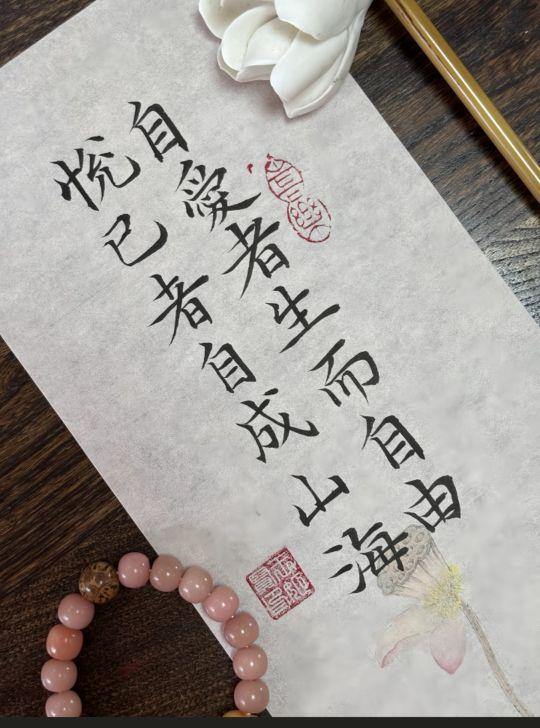 自愛者生而自由
悅己者自成山海